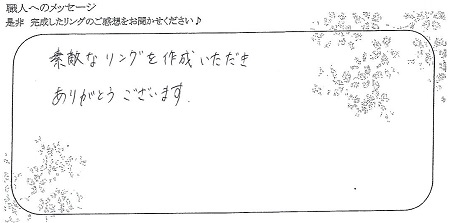 職人へのメッセージ
是非 完成したリングのご感想をお聞かせください♪
素敵なリングを作成いただき
ありがとうございます.